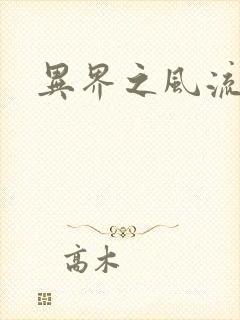 異界之風流
高木